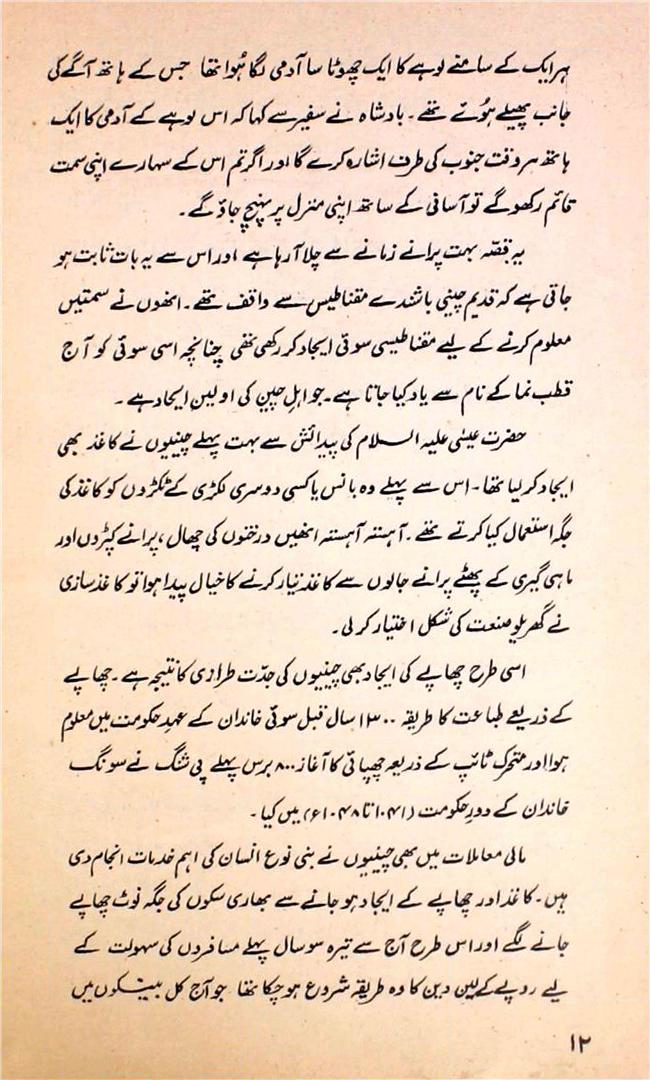 ہر ایک کے سامنے لوہے کا ایک چھوٹا سا آدمی لگا ہُوا تھا جس کے ہاتھ آگے کی
جانب پھیلے ہوُئے تھے۔ بادشاہ نے سفیر سے کہا کہ اس لوہے کے آدمی کا ایک
ہاتھ ہر وقت جنوب کی طرف اشارہ کرے گا اور اگر تم اس کے سہارے اپنی سمت
قائم رکھو گے تو آسانی کے ساتھ اپنی منزل پر پہنچ جاؤ گے۔
یہ قصّہ بہت پرانے زمانے سے چلا آرہا ہے اور اس سے یہ بات ثابت ہو
جاتی ہے کہ قدیم چینی باشندے مقناطیس سے واقف تھے۔ انھوں نے سمتیں
معلوم کرنے کے لیے مقناطیسی سوئی ایجاد کر رکھی تھی چنانچہ اسی سوئی کو آج
قطب نما کے نام سے یاد کیا جاتا ہے۔ جو اہلِ چین کی اولین ایجاد ہے۔
حضرت عیسٰی علیہ السلام کی پیدائش سے بہت پہلے چینیوں نے کاغذ بھی
ایجاد کر لیا تھا۔ اس سے پہلے وہ بانس یا کسی دوسری لکڑی کے ٹکڑوں کو کاغذ کی
جگہ استعمال کیا کرتے تھے۔ آہستہ آہستہ انھیں درختوں کی چھال، پرانے کپڑوں اور
ماہی گیری کے پھٹے پرانے جالوں سے کاغذ تیار کرنے کا خیال پیدا ہوا تو کاغذ سازی
نے گھریلو صنعت کی شکل اختیار کر لی۔
اسی طرح چھاپے کی ایجاد بھی چینیوں کی جدّت طرازی کا نتیجہ ہے۔ چھاپے
کے ذریعے طباعت کا طریقہ ۱۳۰۰ سال قبل سوئی خاندان کے عہدِ حکومت میں معلوم
ہوا اور متحرک ٹائپ کے ذریعہ چھپائی کا آغاز ۸۰۰ برس پہلے پی شنگ نے سونگ
خاندان کے دورِ حکومت (۱۰۴۱ تا ۱۰۴۸ء) میں کیا۔
مالی معاملات میں بھی چینیوں نے بنی نوع انسان کی اہم خدمات انجام دی
ہیں۔ کاغذ اور چھاپے کے ایجاد ہو جانے سے بھاری سکوں کی جگہ نوٹ چھاپے
جانے لگے اور اس طرح آج سے تیرہ سو سال پہلے مسافروں کی سہولت کے
لیے روپے کے لین دین کا وہ طریقہ شروع ہو چکا تھا جو آج کل بینکوں میں
۱۲